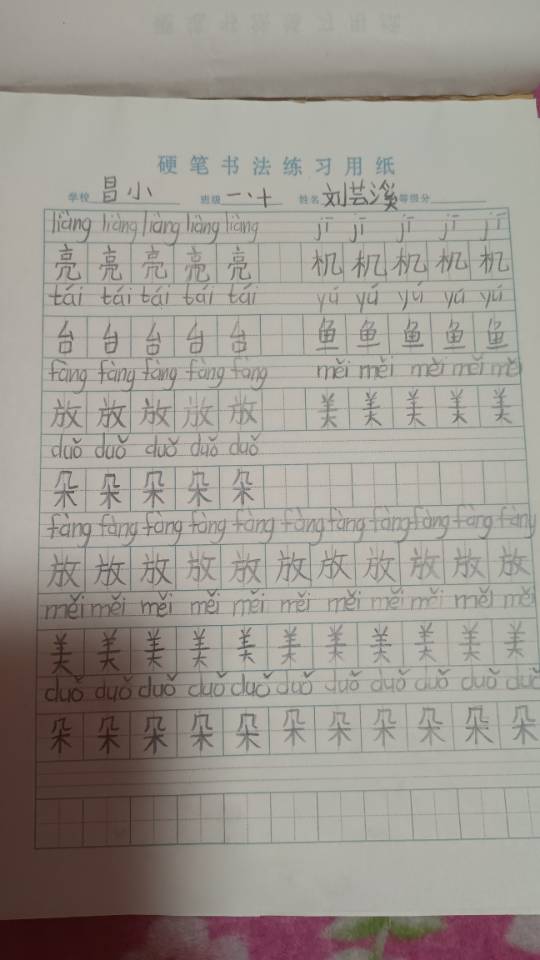 硬笔书法练习用纸
学校 昌小 班级 一.十 姓名 刘芸溪 等级分
liàng liàng liàng liàng liàng jī jī jī jī jī
亮 亮 亮 亮 亮 机 机 机 机 机
tái tái tái tái tái yú yú yú yú yú
台 台 台 台 台 鱼 鱼 鱼 鱼 鱼
fàng fàng fàng fàng fàng měi měi měi měi měi
放 放 放 放 放 美 美 美 美 美
duǒ duǒ duǒ duǒ duǒ
朵 朵 朵 朵 朵
fàng fàng fàng fàng fàng fàng fàng fàng fàng fàng fàng
放 放 放 放 放 放 放 放 放 放 放
měi měi měi měi měi měi měi měi měi měi měi
美 美 美 美 美 美 美 美 美 美 美
duǒ duǒ duǒ duǒ duǒ duǒ duǒ duǒ duǒ duǒ duǒ
朵 朵 朵 朵 朵 朵 朵 朵 朵 朵 朵